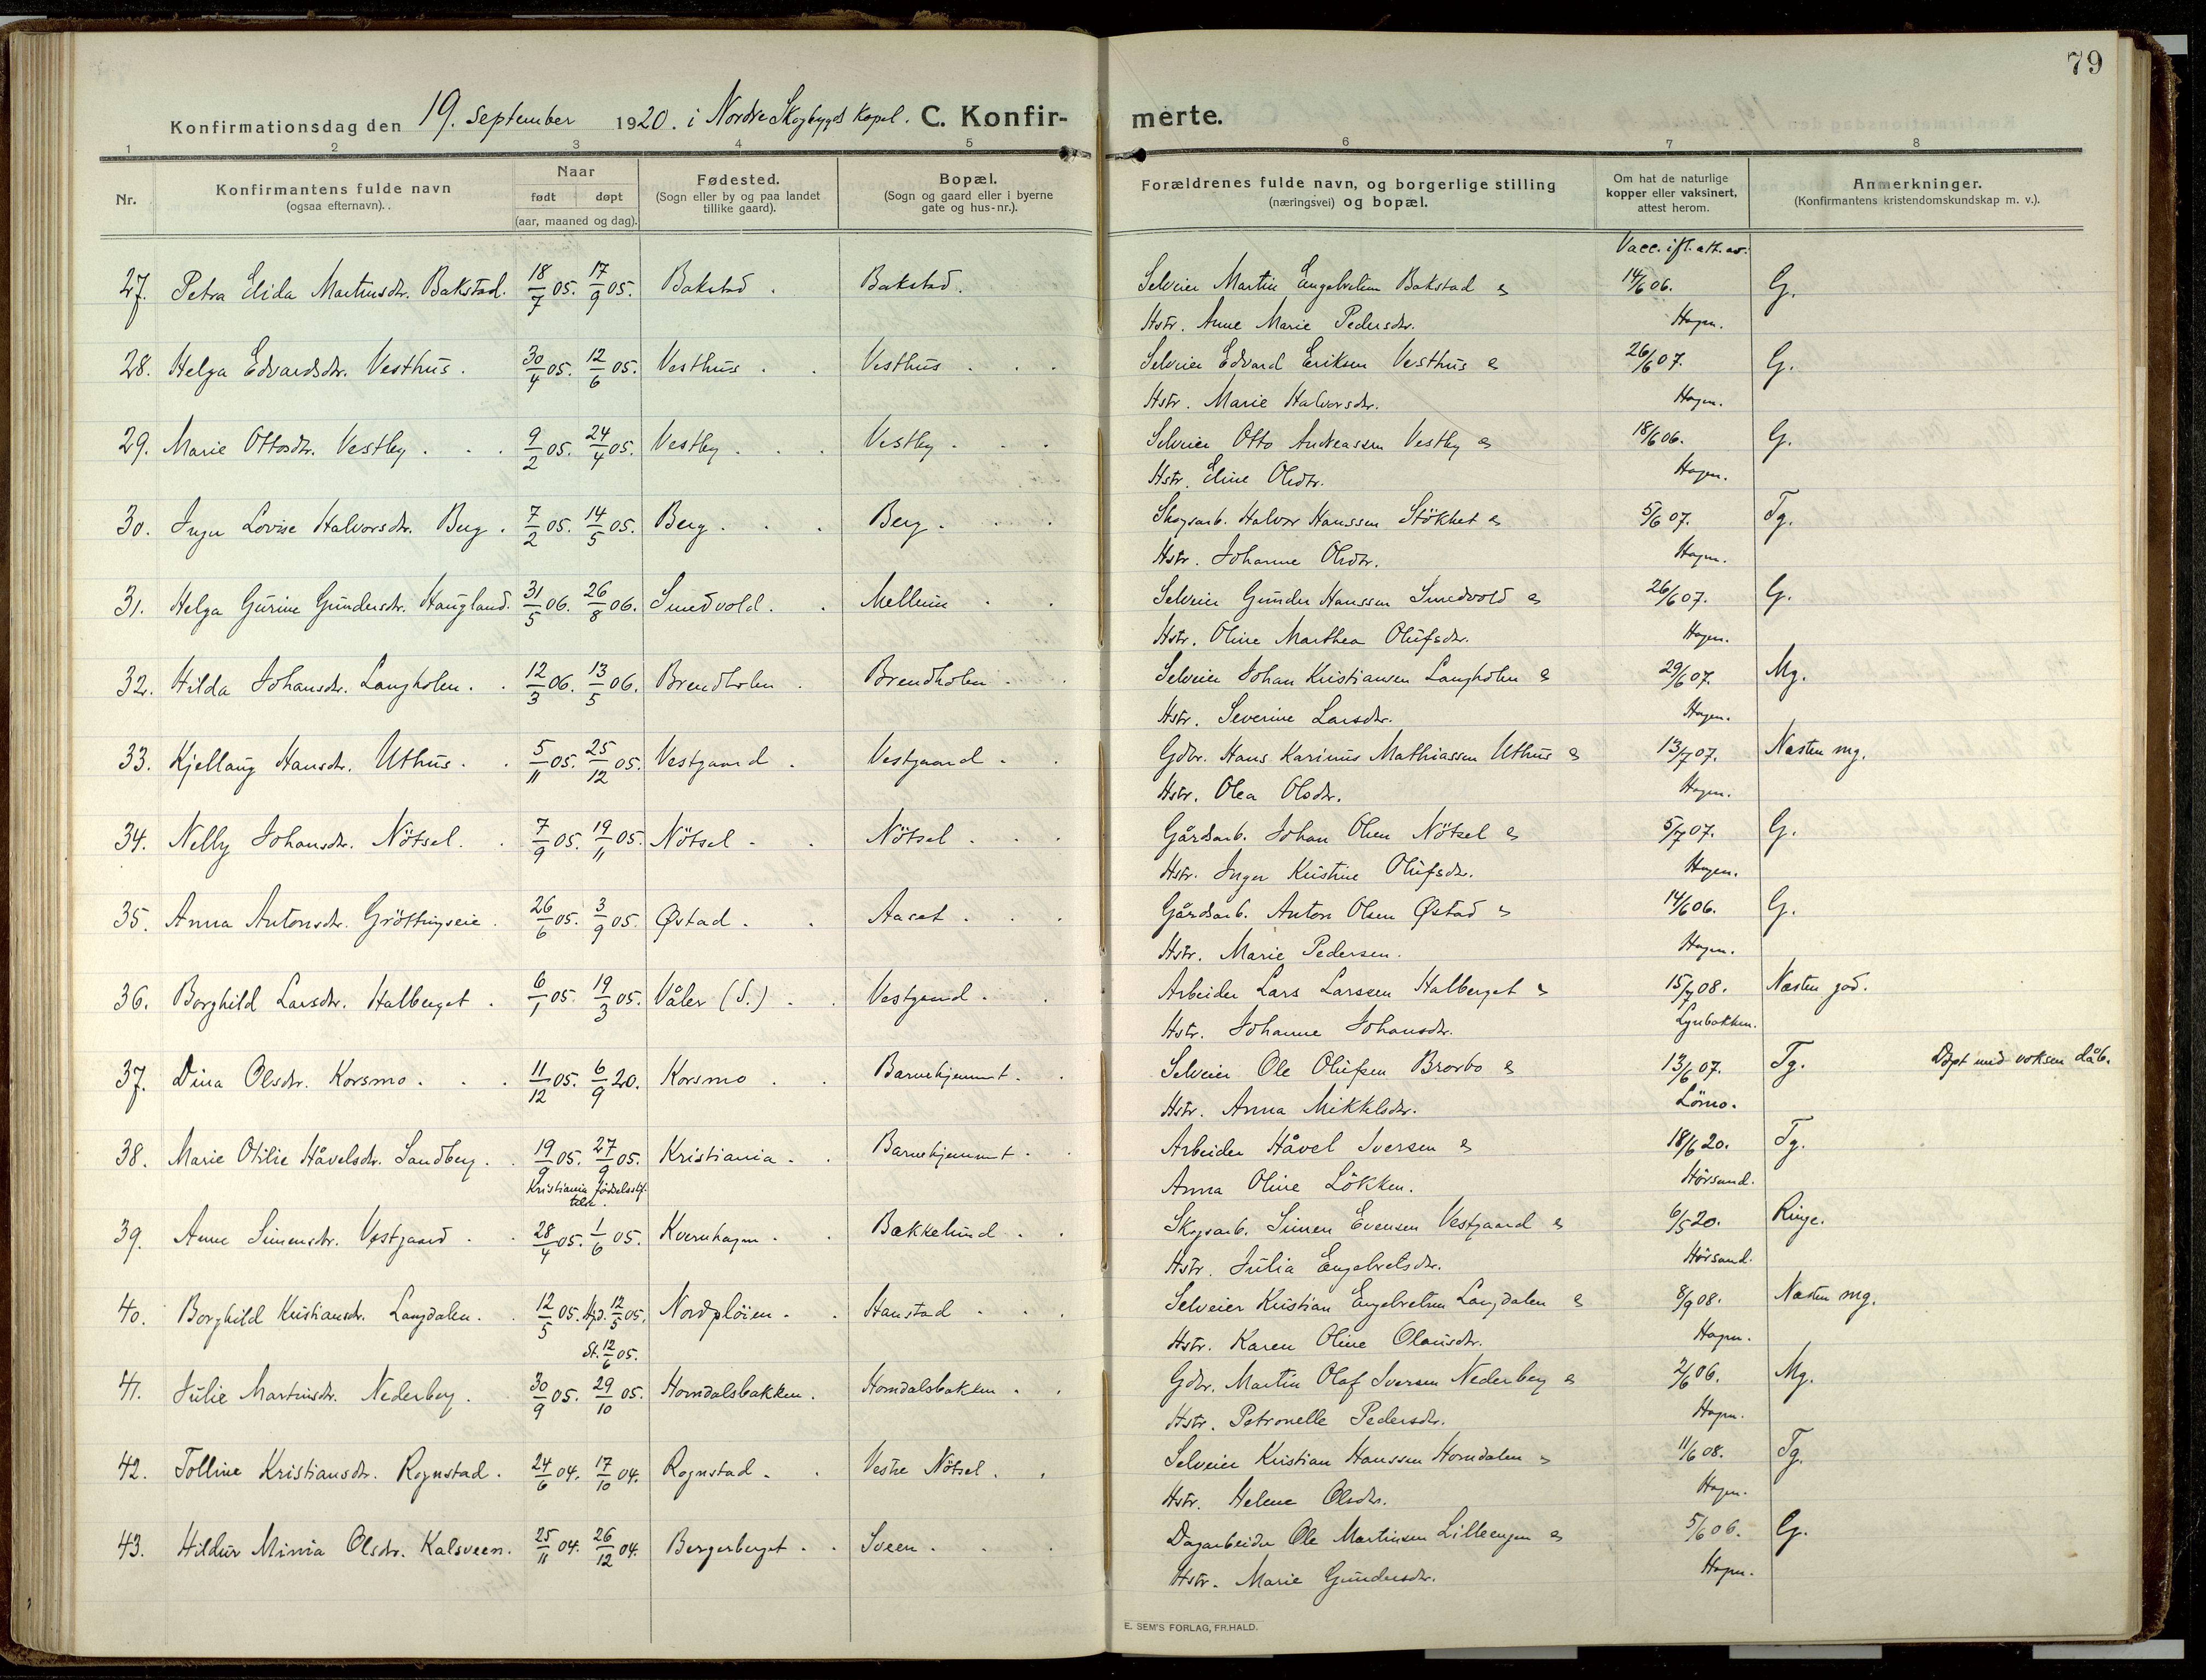 79
Konfirmationsdag den 19. september 1920. i Nordre Skogbygds Kapel. C. Konfirmerte.
1 2 3 4 5 6 7 8
Nr.
Konfirmantens fulde navn
(ogsaa efternavn)..
Naar
født døpt
(aar, maaned og dag).
Fødested.
(Sogn eller by og paa landet
tillike gaard).
Bopæl.
(Sogn og gaard eller i byerne
gate og hus-nr.).
Forældrenes fulde navn, og borgerlige stilling
(næringsvei) og bopæl.
Om hat de naturlige
kopper eller vaksinert,
attest herom.
Anmerkninger.
(Konfirmantens kristendomskundskap m. v.).
Vacc. ifl. att. av:
27. Petra Elida Martinsdtr. Bakstad. 18/7 05. 17/9 05. Bakstad. Bakstad. Selveier Martin Engebretsen Bakstad & 14/6 06. G.
Hstr. Anne Marie Pedersdtr. Hagen.
28. Helga Edvardsdtr. Vesthus. 30/4 05. 12/6 05. Vesthus. Vesthus. Selveier Edvard Eriksen Vesthus & 26/6 07. G.
Hstr. Marie Halvorsdtr. Hagen.
29. Marie Ottosdtr. Vestby. 9/2 05. 24/4 05. Vestby. Vestby. Selveier Otto Andreassen Vestby & 18/6 06. G.
Hstr. Eline Olsdtr. Hagen.
30. Inga Lovise Halvorsdtr. Berg. 7/2 05. 14/5 05. Berg. Berg. Skogsarb. Halvor Hanssen Stökket & 5/6 07. Tg.
Hstr. Johanne Olsdtr. Hagen.
31. Helga Gurine Gundersdtr. Haugland. 31/5 06. 26/8 06. Smedvold. Mellum Selveier Gunder Hanssen Smedvold & 26/6 07. G.
Hstr. Oline Marthea Olufsdtr. Hagen.
32. Hilda Johansdtr. Langholen. 12/3 06. 13/5 06. Brendholen. Brendholen. Selveier Johan Kristiansen Langholen & 29/6 07. Mg.
Hstr. Severine Larsdtr. Hagen.
33. Kjellaug Hansdtr. Uthus. 5/11 05. 25/12 05. Vestgaard. Vestgaard. Gdbr. Hans Karinus Mathiassen Uthus & 13/7 07. Næsten mg.
Hstr. Olea Olsdtr. Hagen.
34. Nelly Johansdtr. Nötsel. 7/9 05. 19/11 05. Nötsel. Nötsel. Gårdsarb. Johan Olsen Nötsel & 5/7 07. G.
Hstr. Inga Kristine Olufsdtr. Hagen.
35. Anna Antonsdtr. Gröttingseie. 26/6 05. 3/9 05. Østad. Aaset. Gårdsarb. Anton Olsen Østad & 14/6 06. G.
Hstr. Marie Pedersen. Hagen.
36. Borghild Larsdtr. Halberget. 6/1 05. 19/3 05. Våler (S.). Vestgaard. Arbeider Lars Larssen Halberget & 15/7 08. Næsten god.
Hstr. Johanne Johansdtr. Lynbakken.
37. Dina Olsdtr. Korsmo. 11/12 05. 6/9 20. Korsmo. Barnehjemmet. Selveier Ole Olufsen Brorbo & 13/6 07. Tg. Døpt med voksen dåb.
Hstr. Anna Mikkelsdtr. Lömo.
38. Marie Otilie Håvelsdtr. Sandberg. 19/9 05. 27/9 05. Kristiania. Barnehjemmet. Arbeider Håvel Iversen & 18/6 20. Tg.
Kristiania fødselsstif-
telse.
Anna Oline Lökken. Hörsand.
39. Anne Simensdtr. Vestgaard. 28/4 05. 1/6 05. Kvernhagen. Bækkelund. Skogsarb. Simen Evensen Vestgaard & 6/5 20. Ringe.
Hstr. Julia Engebretsdtr. Hörsand.
40. Borghild Kristiansdtr. Langdalen. 12/5 05. Hjd. 12/5 05. Nordpløien. Hanstad. Selveier Kristian Engebretsen Langdalen & 8/9 08. Næsten mg.
St. 12/6 05.
Hstr. Karen Oline Olausdtr. Hagen.
41. Julie Martinsdtr. Nederberg. 30/9 05. 29/10 05. Horndalsbakken. Horndalsbakken. Gdbr. Martin Olaf Iversen Nederberg & 2/6 06. Mg.
Hstr. Petronelle Pedersdtr. Hagen.
42. Tolline Kristiansdtr. Rognstad. 24/6 04. 17/10 04. Rognstad. Vestre Nötsel. Selveier Kristian Hanssen Horndalen & 11/6 08. Tg.
Hstr. Helene Olsdtr. Hagen.
43. Hildur Minia Olsdtr. Kalsveen. 25/11 04. 26/12 04. Bergerberget. Sveen. Dagarbeider Ole Martinsen Lilleengen & 5/6 06. G.
Hstr. Marie Gundersdtr. Hagen.
E. SEM'S FORLAG, FR.HALD.